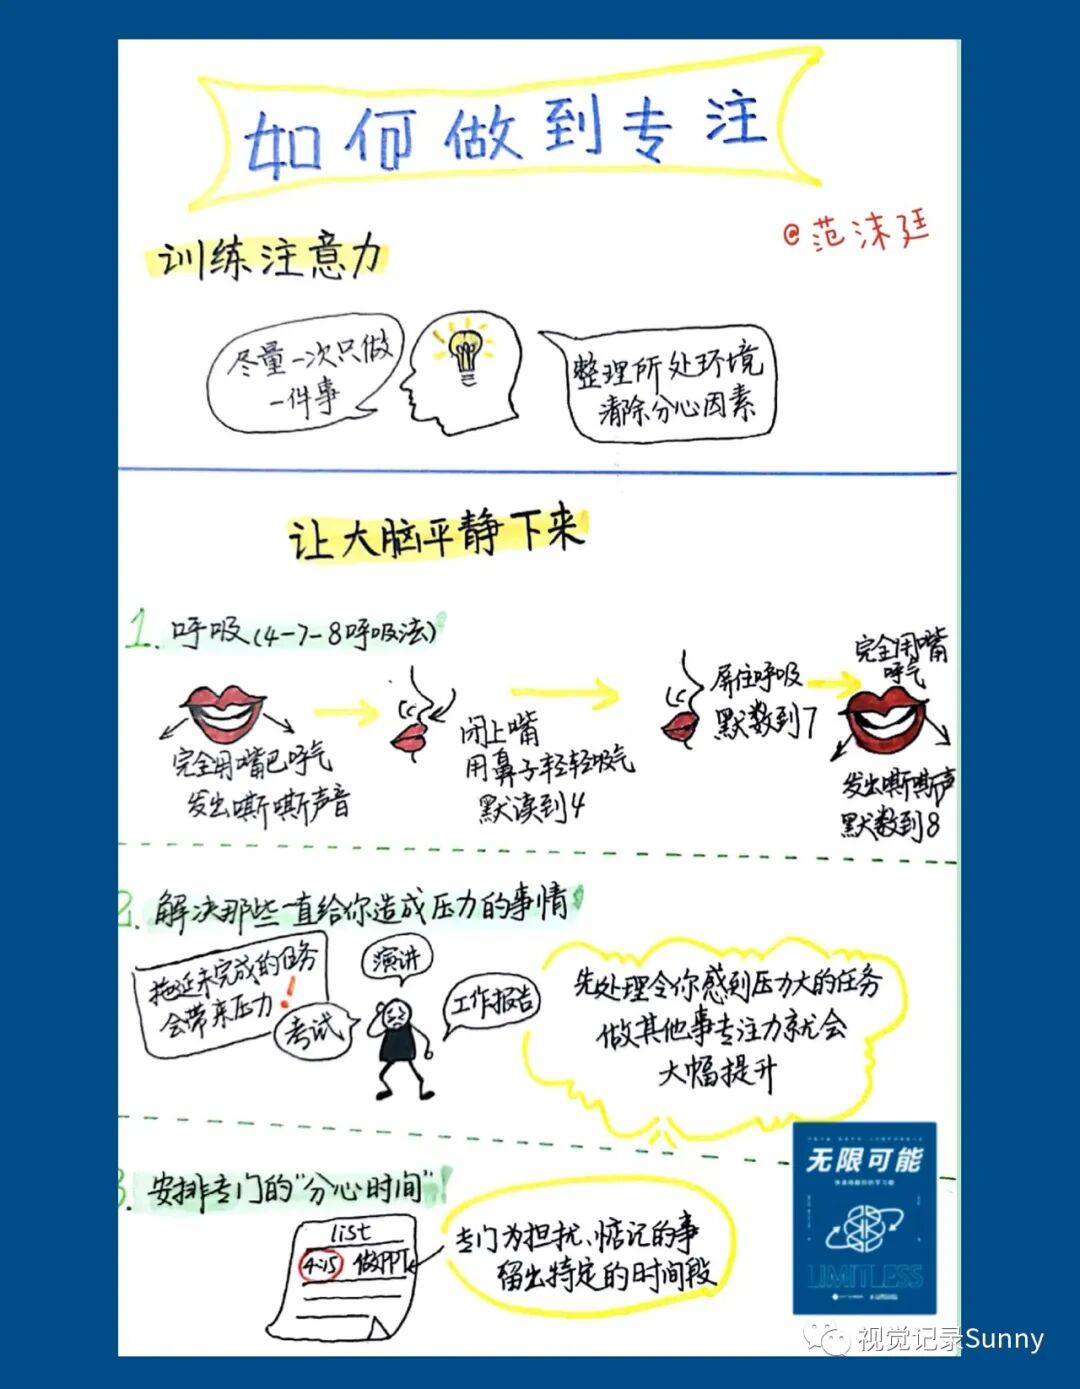 如何做到专注
@范沫廷
训练注意力
尽量一次只做
一件事
整理所处环境
清除分心因素
让大脑平静下来
1. 呼吸(4-7-8呼吸法)
完全用嘴巴呼气
发出嘶嘶声音
闭上嘴
用鼻子轻轻吸气
默读到4
屏住呼吸
默数到7
完全用嘴
呼气
发出嘶嘶声
默数到8
2. 解决那些一直给你造成压力的事情
拖延未完成的任务
会带来压力!
考试
演讲
工作报告
先处理令你感到压力大的任务
做其他事专注力就会
大幅提升
3. 安排专门的"分心时间"
list
4:15 做PPT
专门为担扰、惦记的事
留出特定的时间段
无限可能
LIMITLESS
视觉记录Sunny